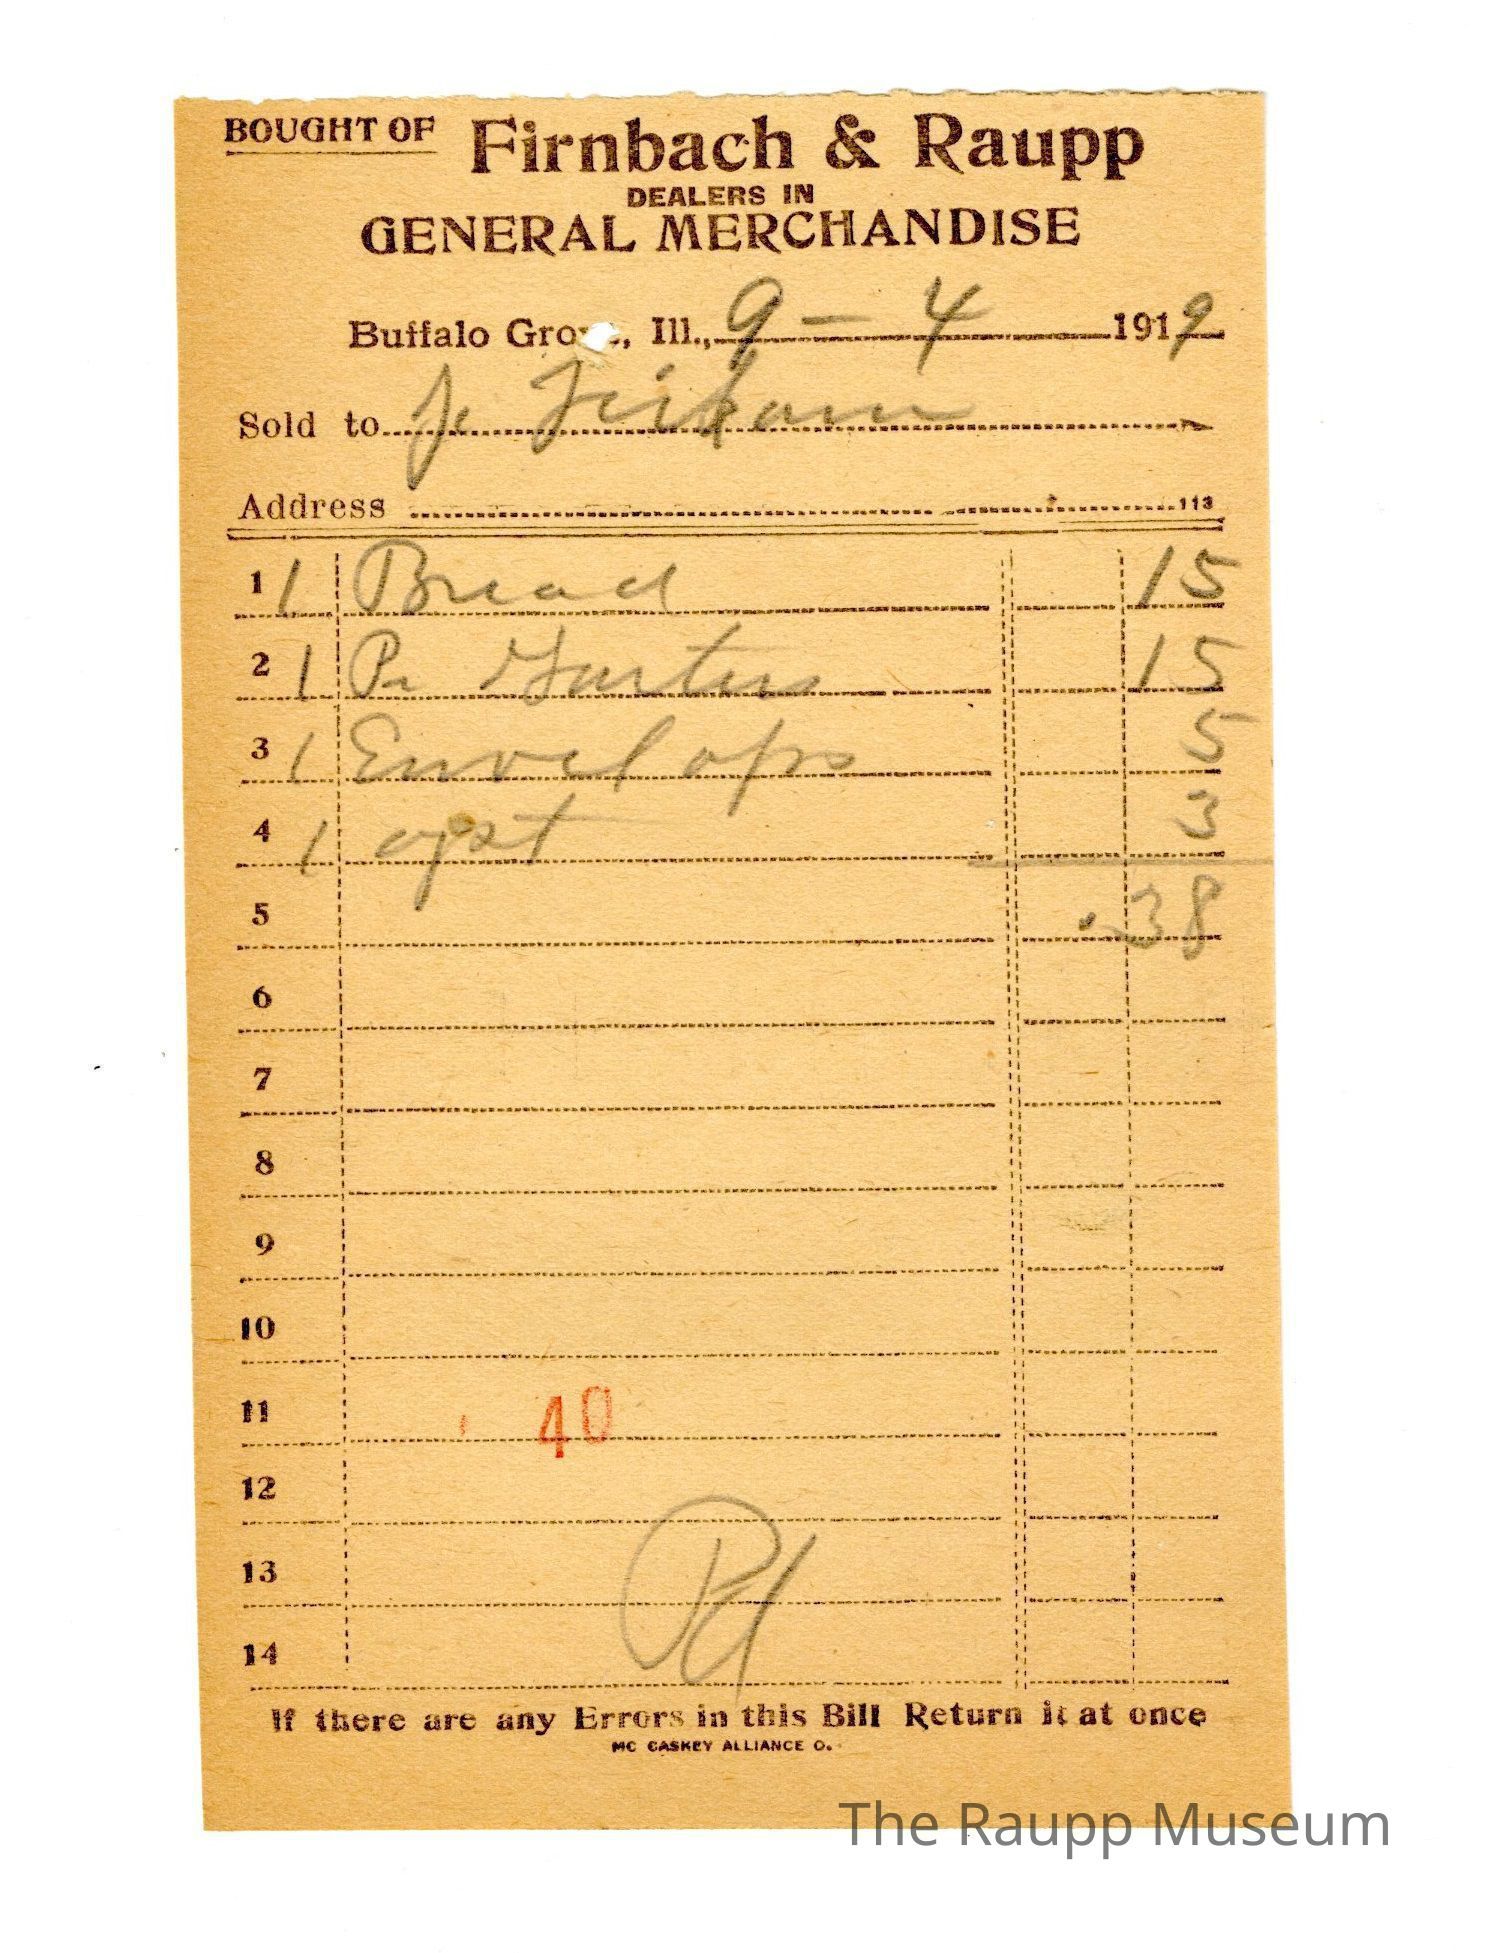 BOUGHT OF Firnbach & Raupp
DEALERS IN
GENERAL MERCHANDISE
Buffalo Grove, Ill., 9 - 4 1919
Sold to J.
Address 113
1 1 Bread 15
2 1 Pr Garters 15
3 1 Envelops 5
4 1 3
5 .38
6
7
8
9
10
11 40
12
13 Pd
14
If there are any Errors in this Bill Return it at once
MC CASKEY ALLIANCE O.
The Raupp Museum